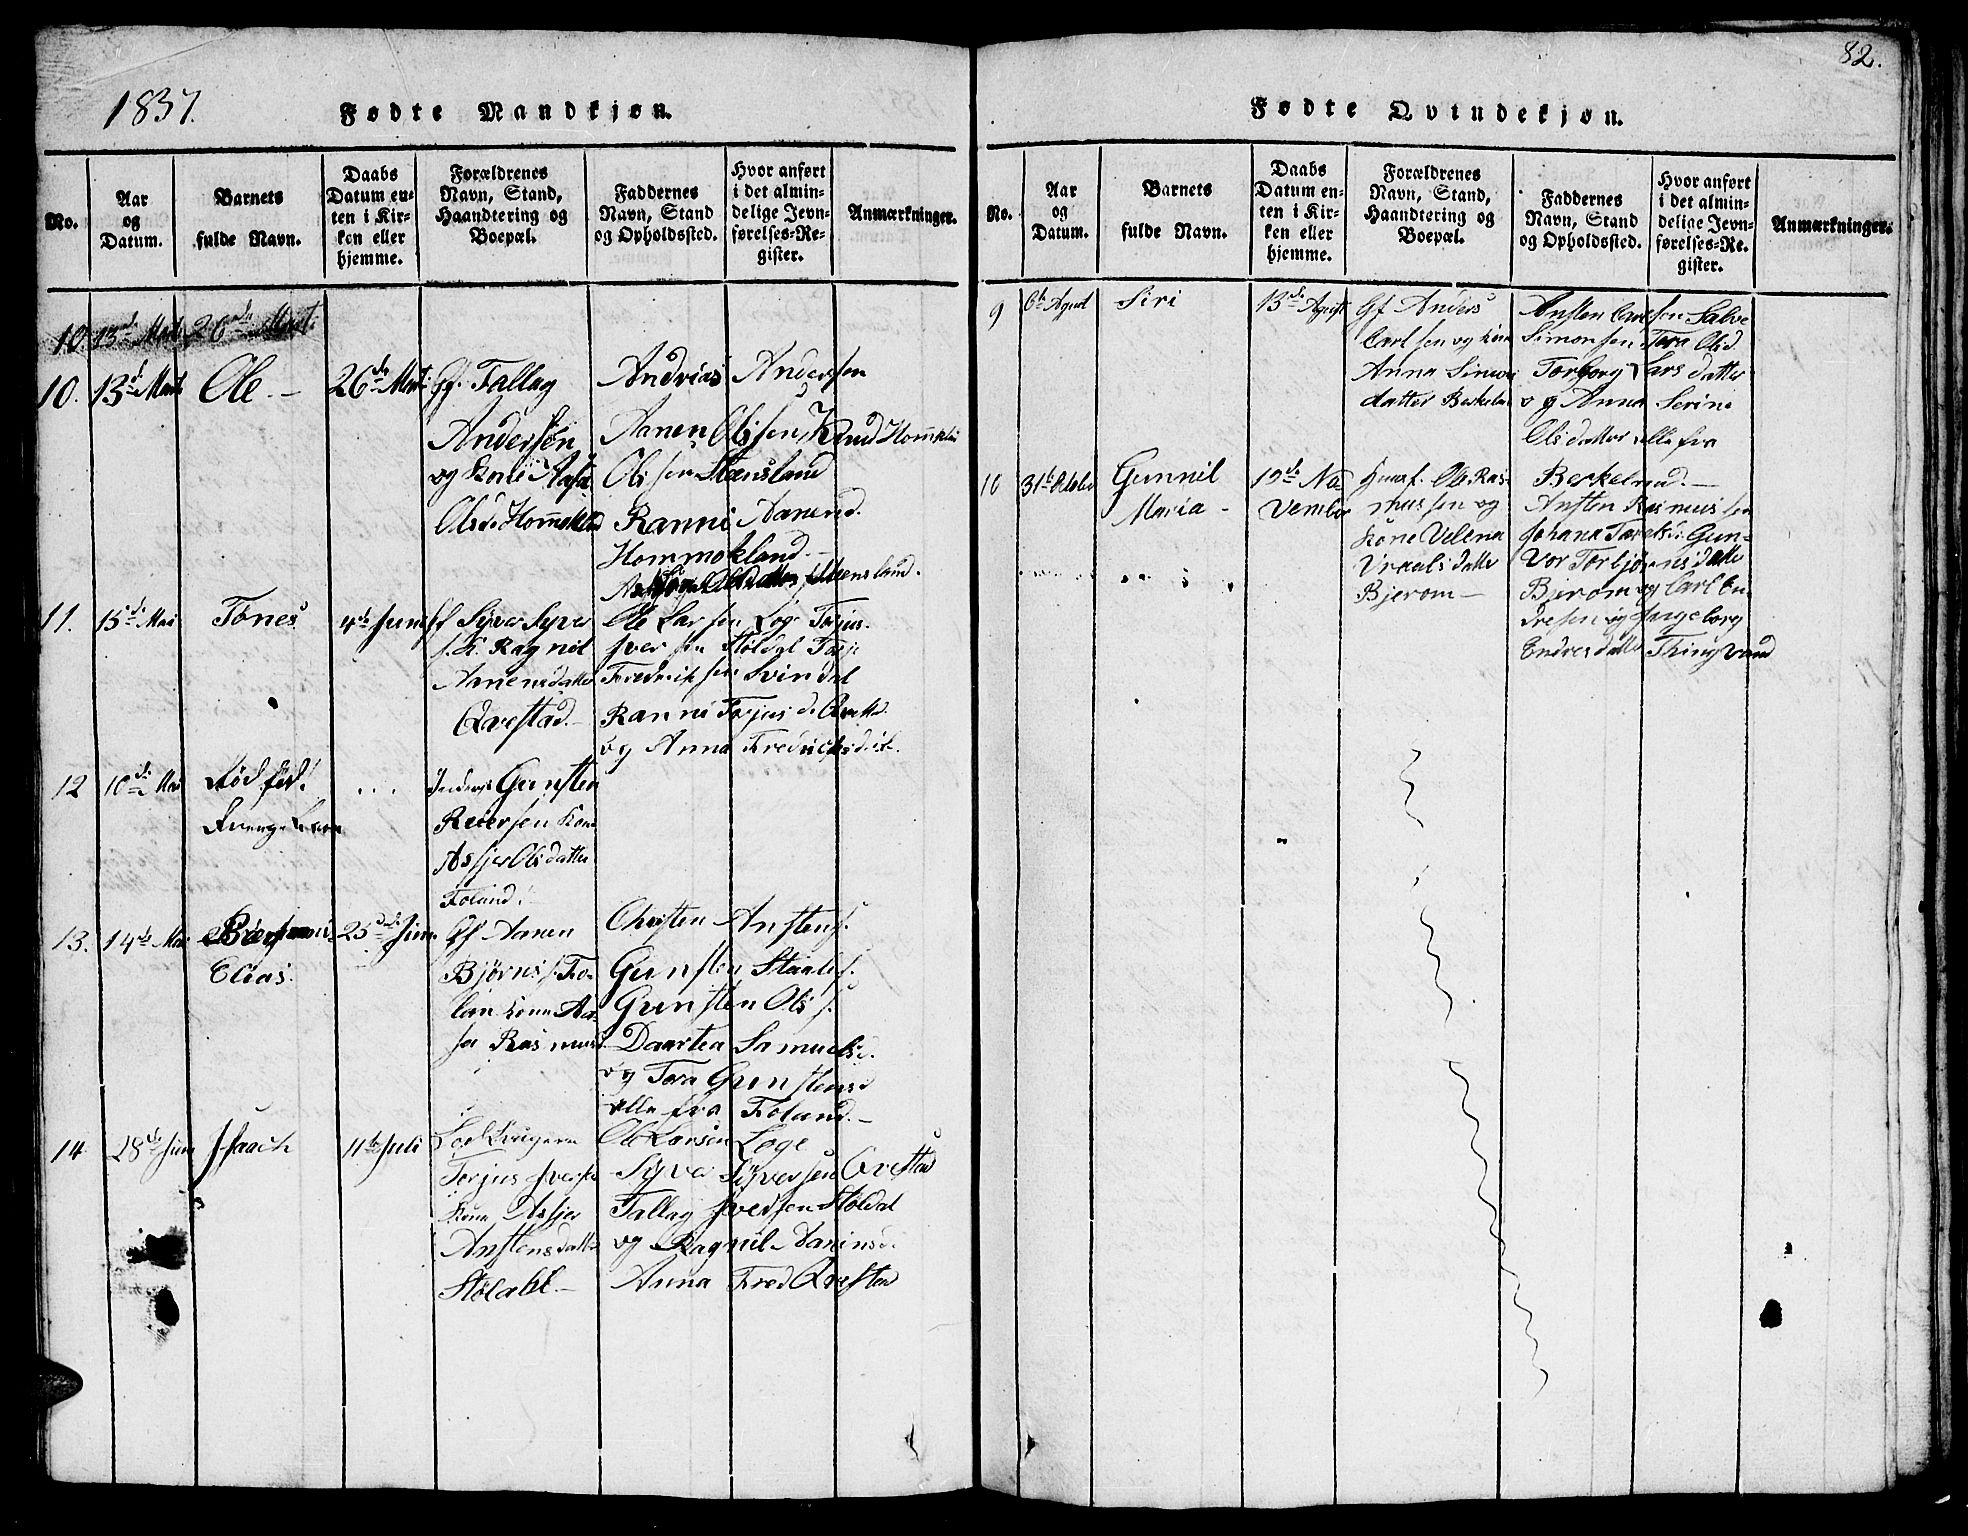 1837.
Fødte Mandkjøn.
No.
Aar
og
Datum.
Barnets
fulde Navn.
Daabs
Datum en-
ten i Kir-
ken eller
hjemme.
Forældrenes
Navn, Stand,
Haandtering og
Boepæl.
Faddernes
Navn, Stand
og Opholdssted.
Hvor anført
i det almin-
delige Jevn-
førelses-Re-
gister.
Anmærkninger.
10. 13de
10. 13de Ole. — 26de Gf. Tallag
Andersen
og Kone Aasa
Olsd.
Andreas Andersen
Aanen Olsen, Knud
Olsen Steensland
Ranni Aanend.
Hommekland —
11. 15de Mai Tønes 4de Juni
Syver Syver
s. K. Ragnil
Aanensdatter
Qvestad. —
Ole Larsen Loge Torjus
Iversen Stöldal Torje
Fredriksen Svindal
Ranni Torjusd.
og Anna
12 10de Mai Død fød
...
Gunsten
Reiersen Kone
Asjer Olsdatter
Foland.
13. 14de Mai
Elias.
25de Juni
Gf Aanen
Bjørns. Fo-
lan kone Aa-
sa Rasmusd.
Christen Anstens.
Gunsten Staales.
Gunsten Ols s.
Daartea Samuelsd.
og Tora Gunstensd
alle fra Foland. —
14 28de Juni Isaach 11te Juli
Torjus Iversen
Kone Asjer
Anstensdatter
Stöldal —
Ole Larsen Loge
Syver Syversen Qvestad
Tallag Iversen Stöldal
og Ragnil Aanensd.
Anna Fred Qvestad
82.
Fødte Qvindekjøn.
No.
Aar
og
Datum.
Barnets
fulde Navn.
Daabs
Datum en-
ten i Kir-
ken eller
hjemme.
Forældrenes
Navn, Stand,
Haandtering og
Boepæl.
Faddernes
Navn, Stand
og Opholdssted.
Hvor anført
i det almin-
delige Jevn-
førelses-Re-
gister.
Anmærkninger.
9 6te Agust Siri 13de Agust
Gf Anders
Carlsen og kone
Anna Simon
datter
Ansten Carlsen Salve
Simonsen Tora Olsd.
Torborg Larsdatter
og Anna Serine
Olsdatter alle fra
Berkelund. —
10 31te Gunnil
Maria —
19de No-
vember
Ole Ras-
mussen og
kone Velena
datter
Bjerom —
Ansten Rasmussen
Johana Gun-
vor Torbjørnsdatte
Bjerom og Carl En-
dresen og Ingeborg
Endresdatte Thingvand